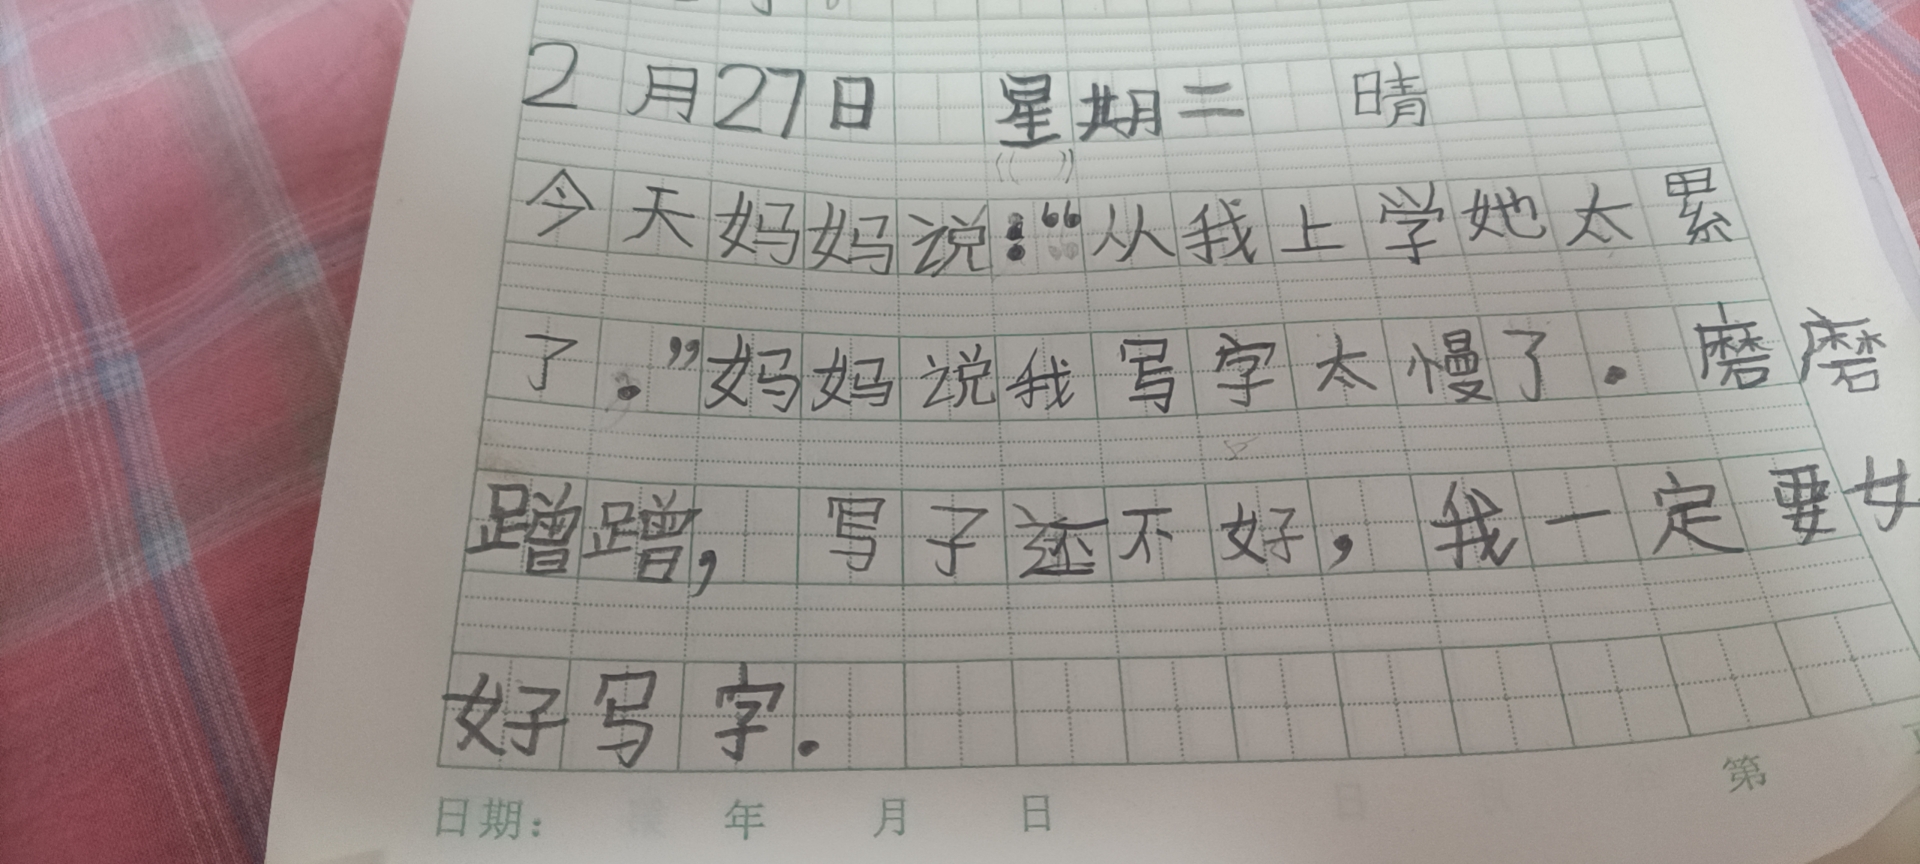 2月27日 星期二 晴
今天妈妈说：“从我上学她太累
了.”妈妈说我写字太慢了.磨磨
蹭蹭，写子还不好，我一定要
好写字.
日期： 年 月 日
第